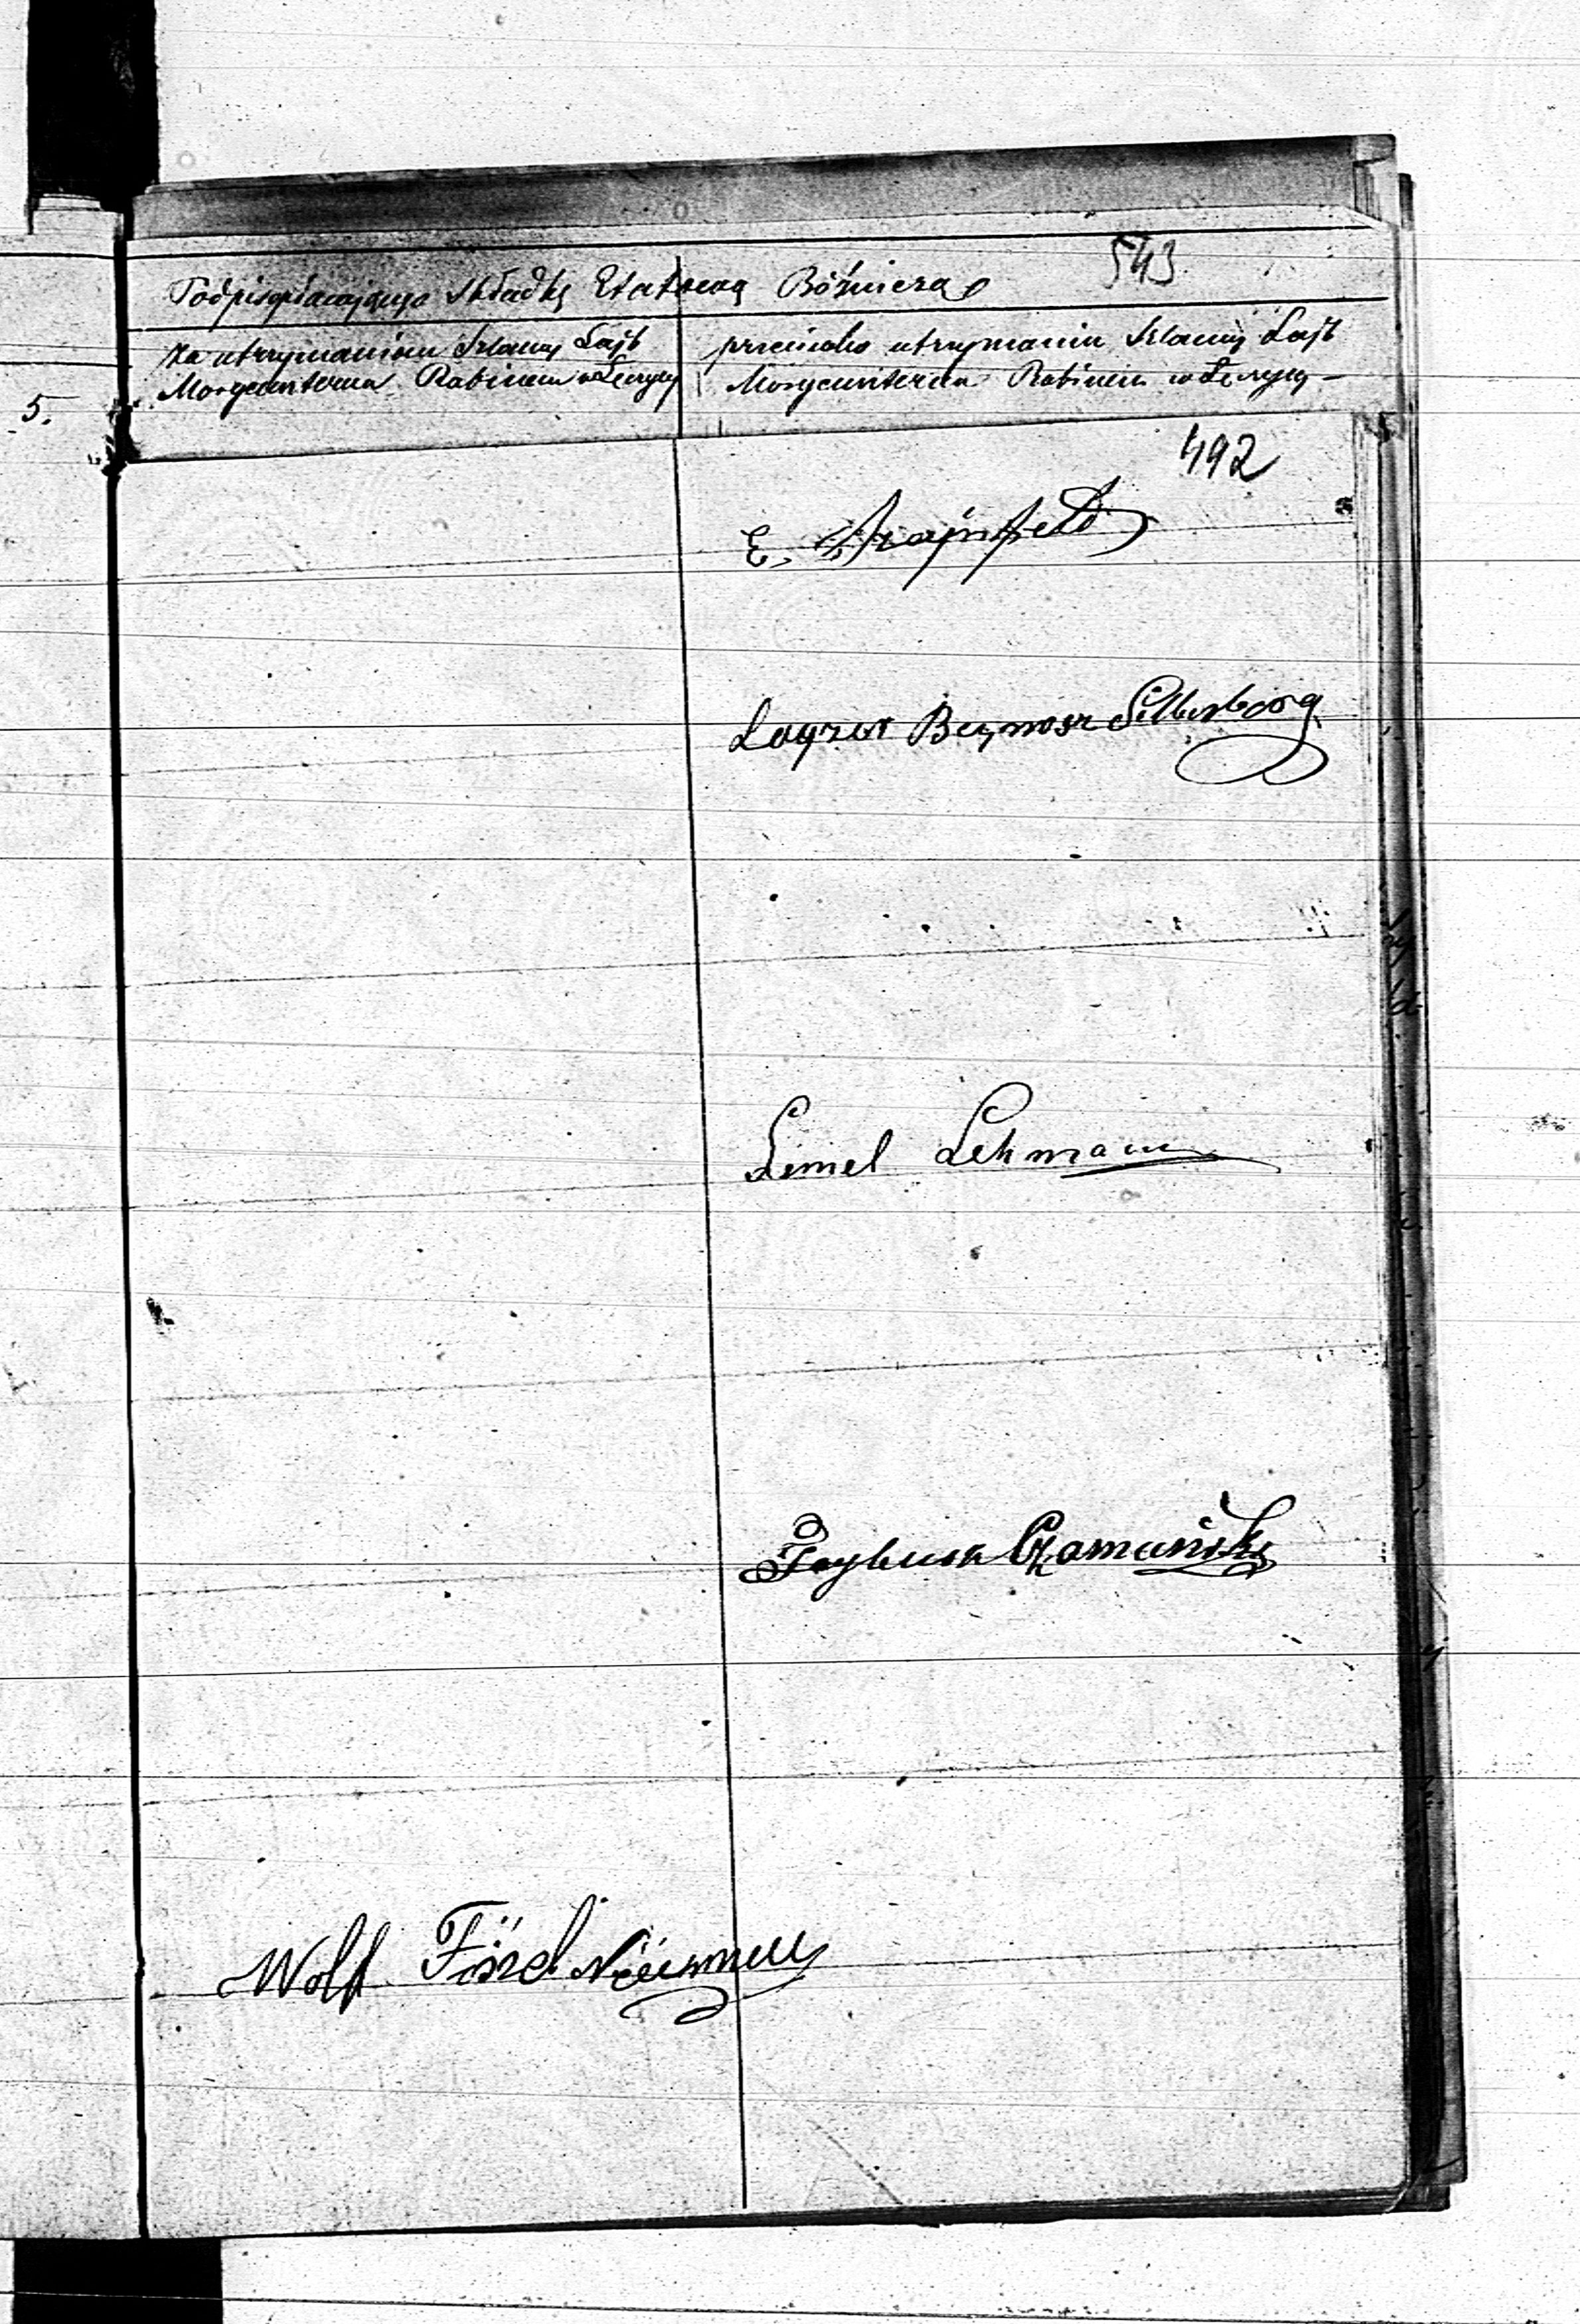 543
Podpis opłacającego składkę Etatową Bóżniczą
za utrzymaniem Szlamy Lajb
Morgensterna Rabinem w Łęczycy
przeciwko utrzymaniu Szlamy Lajb
Morgensterna Rabinem w Łęczycy –
5.
492
E.
Layzer Beynosz Silberberg
Lemel Lehmann
Faybusz Czamański
Wolf Neuman